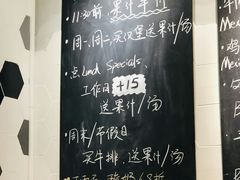 11:30前 果汁半价
周一、周二 买汉堡送果汁/汤
点Lunch Specials
工作日 +15
送果汁/汤
周末/节假日
买牛排，送果汁/汤
Mei
Me